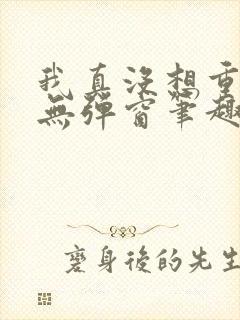 我真沒想重
無彈窗筆趣
變身後的先生